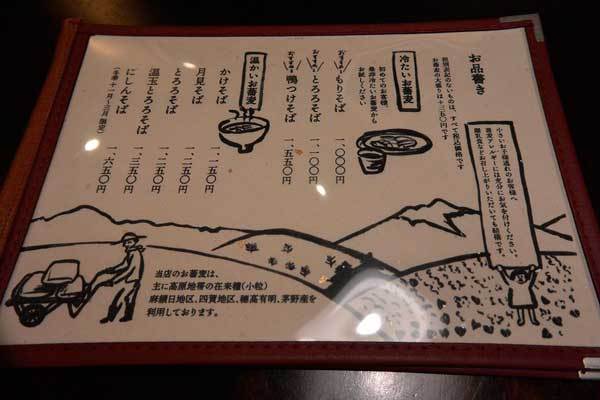 お品書き
特別表記のないものは、すべて税込価格です
お蕎麦の大盛りは+三五〇円です
小さいお子様連れのお客様へ
蕎麦アレルギーには充分にお気を付けください。
離乳食などお召し上がりいただいても結構です。
冷たいお蕎麦
初めてのお客様、
是非冷たいお蕎麦から
お試しください
おすすめ
もりそば 一、〇〇〇円
おすすめ
とろろそば 一、一〇〇円
おすすめ
鴨つけそば 一、五五〇円
温かいお蕎麦
かけそば
月見そば 一、一五〇円
とろろそば 一、二五〇円
温玉とろろそば 一、三五〇円
にしんそば 一、六五〇円
(冬季 十一月〜三月 限定)
当店のお蕎麦は、
主に高原地帯の在来種(小粒)
麻績日地区、四賀地区、穂高有明、茅野産を
利用しております。